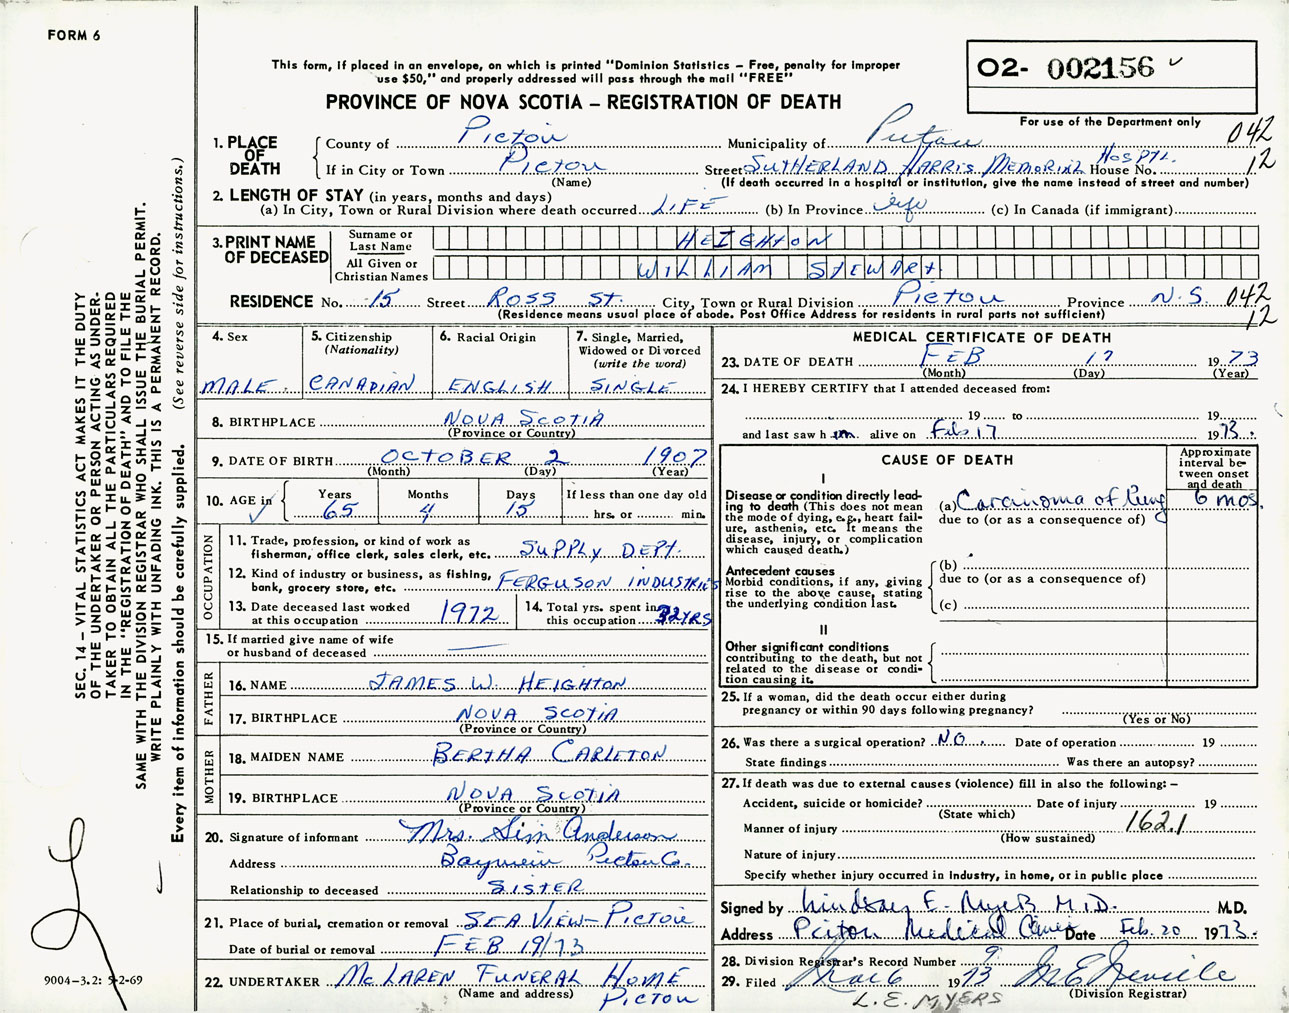 FORM 6
This form, if placed in an envelope, on which is printed "Dominion Statistics – Free, penalty for improper
use $50," and properly addressed will pass through the mail "FREE"
PROVINCE OF NOVA SCOTIA – REGISTRATION OF DEATH
O2- 002156
For use of the Department only
042
12
1. PLACE OF DEATH
County of Pictou Municipality of Pictou
If in City or Town Pictou Street SUTHERLAND HARRIS MEMORIAL HOSPTL. House No.
(Name) (If death occurred in a hospital or institution, give the name instead of street and number)
2. LENGTH OF STAY (in years, months and days)
(a) In City, Town or Rural Division where death occurred LIFE (b) In Province life (c) In Canada (if immigrant)
3. PRINT NAME OF DECEASED
Surname or Last Name HEIGHTON
All Given or Christian Names WILLIAM STEWART
RESIDENCE No. 15 Street ROSS ST. City, Town or Rural Division Pictou Province N.S. 042
12
(Residence means usual place of abode. Post Office Address for residents in rural parts not sufficient)
4. Sex MALE.
5. Citizenship (Nationality) CANADIAN
6. Racial Origin ENGLISH
7. Single, Married, Widowed or Divorced (write the word) SINGLE
8. BIRTHPLACE NOVA SCOTIA
(Province or Country)
9. DATE OF BIRTH OCTOBER 2 1907
(Month) (Day) (Year)
10. AGE in Years 65 Months 4 Days 15 If less than one day old
hrs. or min.
OCCUPATION
11. Trade, profession, or kind of work as
fisherman, office clerk, sales clerk, etc. SUPPLY DEPT.
12. Kind of industry or business, as fishing,
bank, grocery store, etc. FERGUSON INDUSTRIES
13. Date deceased last worked
at this occupation 1972
14. Total yrs. spent in
this occupation 32 YRS
15. If married give name of wife
or husband of deceased
FATHER
16. NAME JAMES W. HEIGHTON
17. BIRTHPLACE NOVA SCOTIA
(Province or Country)
MOTHER
18. MAIDEN NAME BERTHA CARLETON
19. BIRTHPLACE NOVA SCOTIA
(Province or Country)
20. Signature of informant Mrs. Sim Anderson
Address Bayview Pictou Co.
Relationship to deceased SISTER
21. Place of burial, cremation or removal SEAVIEW – PICTOU
Date of burial or removal FEB 19/73
22. UNDERTAKER McLAREN FUNERAL HOME
(Name and address) PICTOU
MEDICAL CERTIFICATE OF DEATH
23. DATE OF DEATH FEB 17 1973
(Month) (Day) (Year)
24. I HEREBY CERTIFY that I attended deceased from:
19 to 19
and last saw h im alive on Feb 17 1973.
CAUSE OF DEATH
Approximate interval between onset and death
I
Disease or condition directly lead-
ing to death (This does not mean
the mode of dying, e.g., heart fail-
ure, asthenia, etc. It means the
disease, injury, or complication
which caused death.)
(a) Carcinoma of lung 6 mos.
due to (or as a consequence of)
Antecedent causes
Morbid conditions, if any, giving
rise to the above cause, stating
the underlying condition last.
(b)
due to (or as a consequence of)
(c)
II
Other significant conditions
contributing to the death, but not
related to the disease or condi-
tion causing it.
25. If a woman, did the death occur either during
pregnancy or within 90 days following pregnancy?
(Yes or No)
26. Was there a surgical operation? NO Date of operation 19
State findings Was there an autopsy?
27. If death was due to external causes (violence) fill in also the following: –
Accident, suicide or homicide? Date of injury 19
(State which)
Manner of injury 162.1
(How sustained)
Nature of injury
Specify whether injury occurred in industry, in home, or in public place
Signed by Lindsay E. Myers M.D. M.D.
Address Pictou Medical Clinic Date Feb. 20 1973.
28. Division Registrar's Record Number 9
29. Filed Mar 6 1973 M E Neville
L.E. MYERS (Division Registrar)
SEC. 14 – VITAL STATISTICS ACT MAKES IT THE DUTY
OF THE UNDERTAKER OR PERSON ACTING AS UNDER-
TAKER TO OBTAIN ALL THE PARTICULARS REQUIRED
IN THE "REGISTRATION OF DEATH" AND TO FILE THE
SAME WITH THE DIVISION REGISTRAR WHO SHALL ISSUE THE BURIAL PERMIT.
WRITE PLAINLY WITH UNFADING INK. THIS IS A PERMANENT RECORD.
Every item of information should be carefully supplied. (See reverse side for instructions.)
9004-3.2: 5-2-69